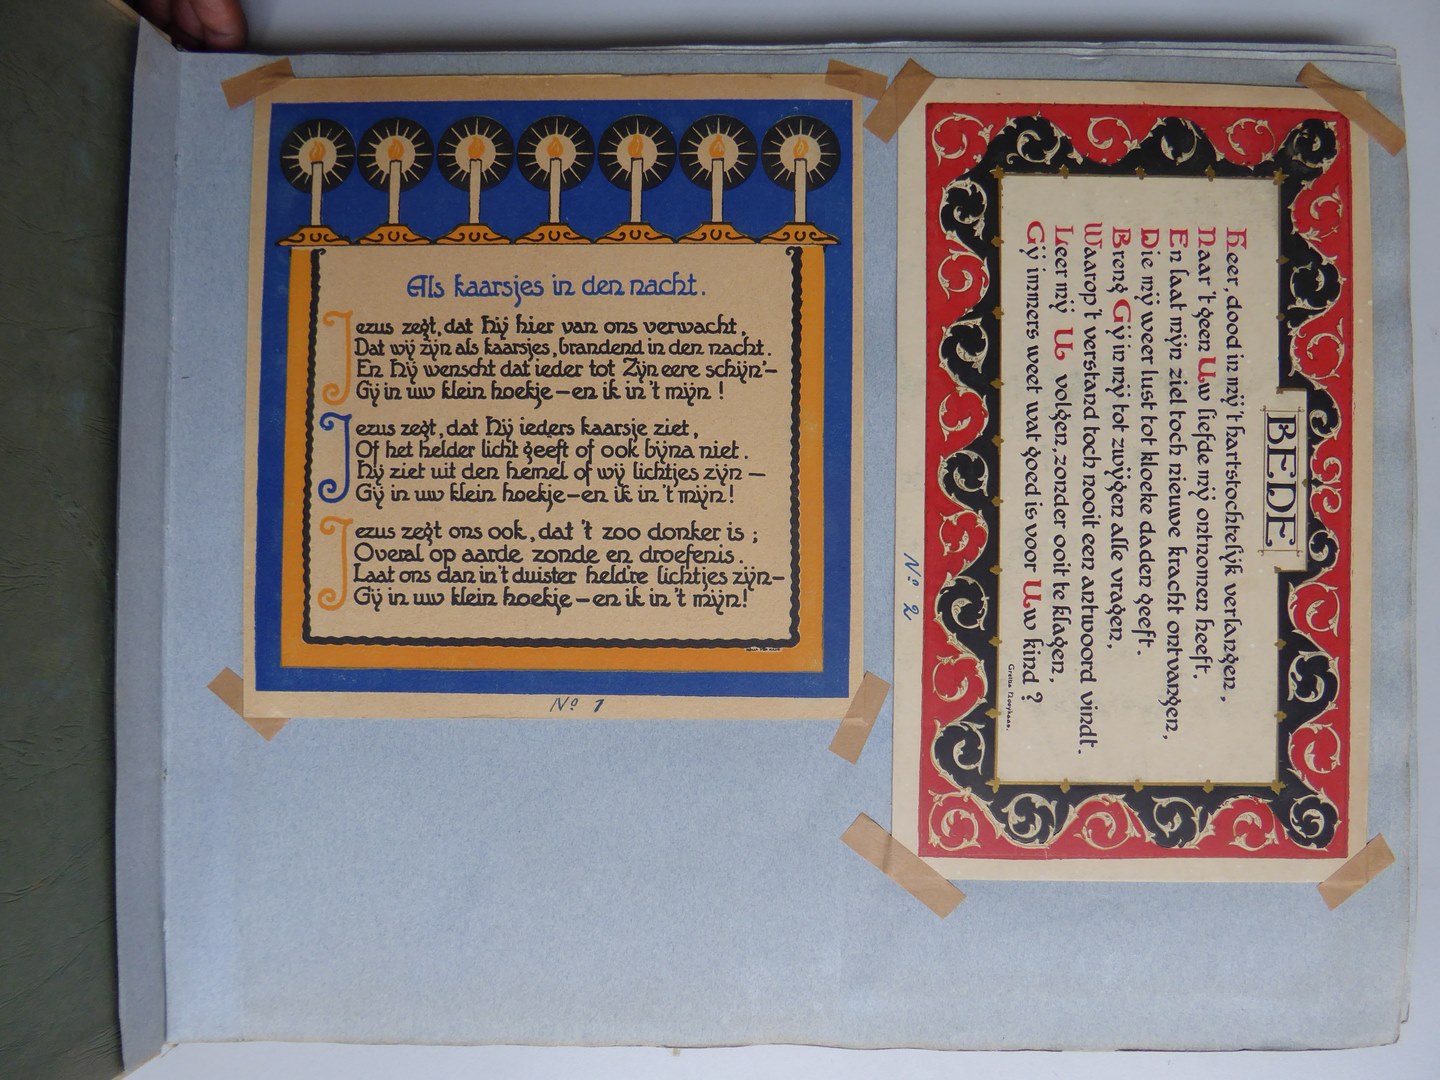 Als kaarsjes in den nacht.
Jezus zegt, dat Hij hier van ons verwacht,
Dat wij zijn als kaarsjes, brandend in den nacht.
En Hij wenscht dat ieder tot Zijn eere schijn'—
Gij in uw klein hoekje — en ik in 't mijn!
Jezus zegt, dat Hij ieders kaarsje ziet,
Of het helder licht geeft of ook bijna niet.
Hij ziet uit den hemel of wij lichtjes zijn —
Gij in uw klein hoekje — en ik in 't mijn!
Jezus zegt ons ook, dat 't zoo donker is;
Overal op aarde zonde en droefenis.
Laat ons dan in 't duister held're lichtjes zijn—
Gij in uw klein hoekje — en ik in 't mijn!
No 1
BEDE
Heer, dood in mij 't hartstochtelijk verlangen,
Naar 't geen Uw liefde mij ontnomen heeft,
En laat mijn ziel toch nieuwe kracht ontvangen,
Die mij weer lust tot kloeke daden geeft.
Breng Gij in mij tot zwijgen alle vragen,
Waarop 't verstand toch nooit een antwoord vindt.
Leer mij U volgen, zonder ooit te klagen,
Gij immers weet wat goed is voor Uw kind?
No 2